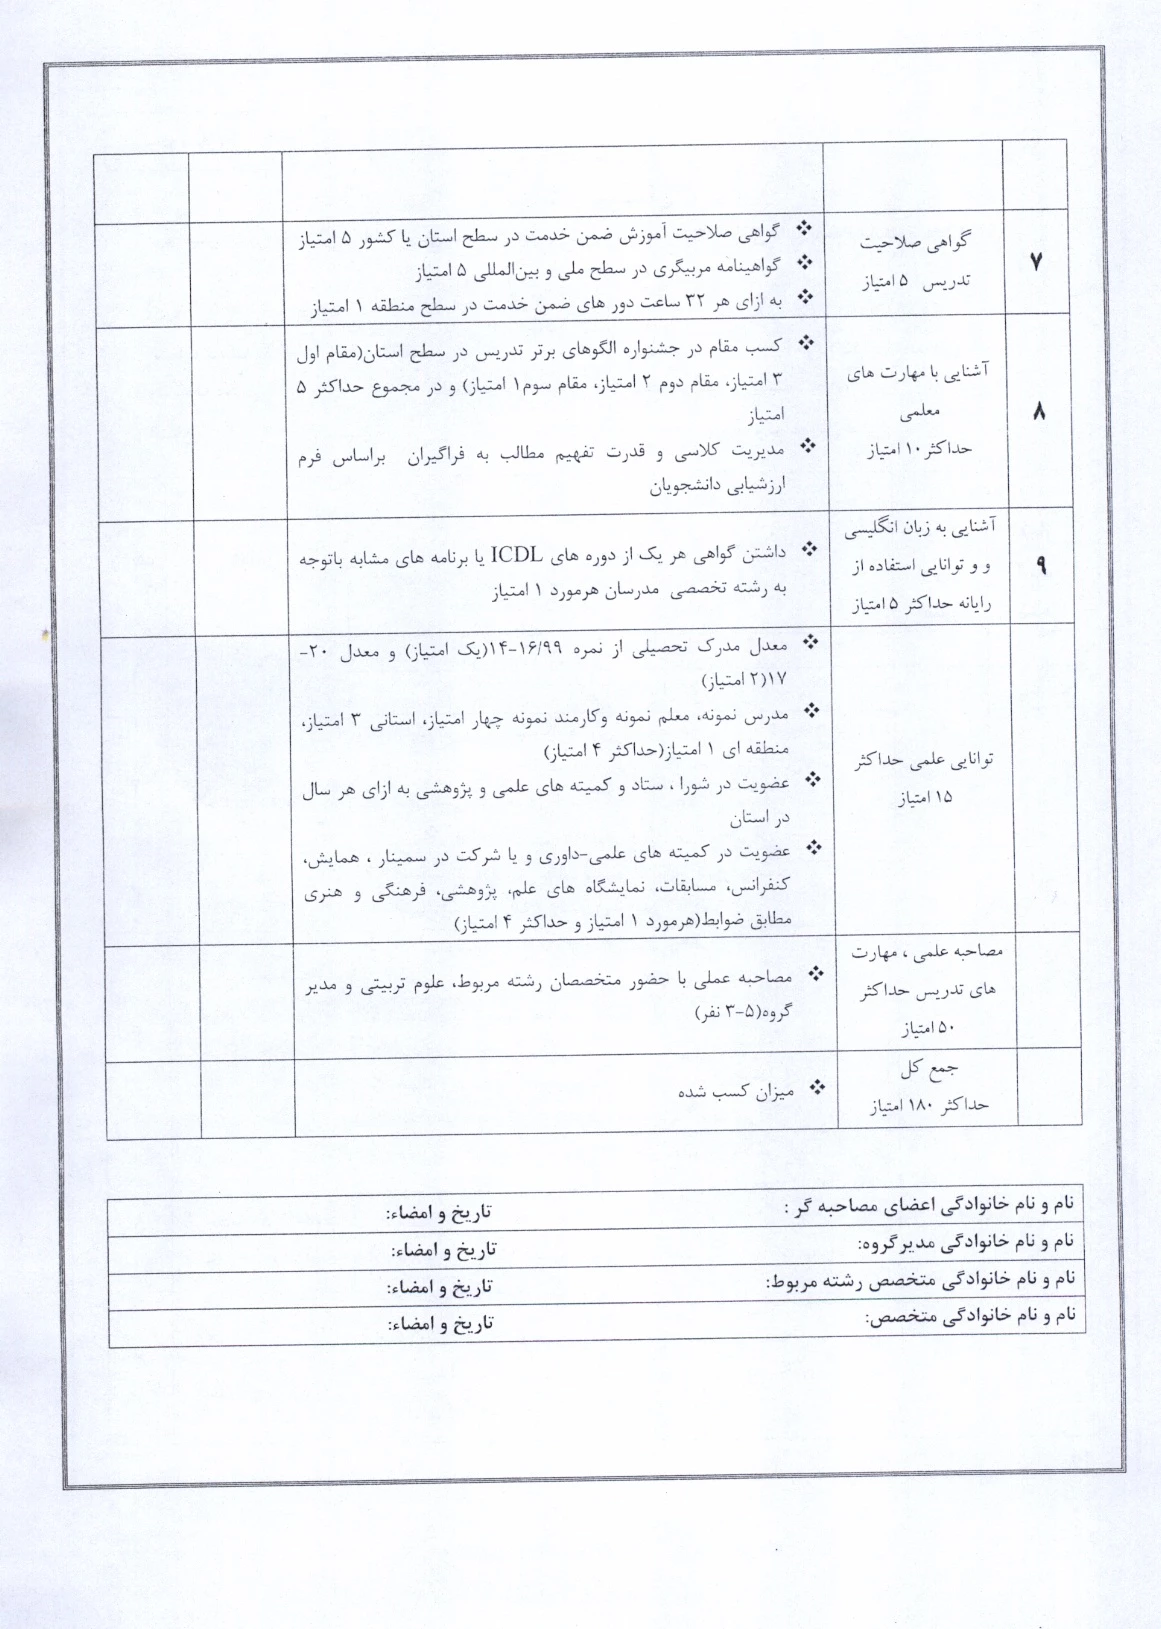 ۷
گواهی صلاحیت
تدریس ۵ امتیاز
❖ گواهی صلاحیت آموزش ضمن خدمت در سطح استان یا کشور ۵ امتیاز
❖ گواهینامه مربیگری در سطح ملی و بین‌المللی ۵ امتیاز
❖ به ازای هر ۳۲ ساعت دور های ضمن خدمت در سطح منطقه ۱ امتیاز
۸
آشنایی با مهارت های
معلمی
حداکثر ۱۰ امتیاز
❖ کسب مقام در جشنواره الگوهای برتر تدریس در سطح استان(مقام اول
۳ امتیاز، مقام دوم ۲ امتیاز، مقام سوم۱ امتیاز) و در مجموع حداکثر ۵
امتیاز
❖ مدیریت کلاسی و قدرت تفهیم مطالب به فراگیران براساس فرم
ارزشیابی دانشجویان
۹
آشنایی به زبان انگلیسی
و و توانایی استفاده از
رایانه حداکثر ۵ امتیاز
❖ داشتن گواهی هر یک از دوره های ICDL یا برنامه های مشابه باتوجه
به رشته تخصصی مدرسان هرمورد ۱ امتیاز
توانایی علمی حداکثر
۱۵ امتیاز
❖ معدل مدرک تحصیلی از نمره ۱۶/۹۹-۱۴(یک امتیاز) و معدل ۲۰-
۱۷(۲ امتیاز)
❖ مدرس نمونه، معلم نمونه وکارمند نمونه چهار امتیاز، استانی ۳ امتیاز،
منطقه ای ۱ امتیاز(حداکثر ۴ امتیاز)
❖ عضویت در شورا ، ستاد و کمیته های علمی و پژوهشی به ازای هر سال
در استان
❖ عضویت در کمیته های علمی-داوری و یا شرکت در سمینار ، همایش،
کنفرانس، مسابقات، نمایشگاه های علم، پژوهشی، فرهنگی و هنری
مطابق ضوابط(هرمورد ۱ امتیاز و حداکثر ۴ امتیاز)
مصاحبه علمی ، مهارت
های تدریس حداکثر
۵۰ امتیاز
❖ مصاحبه عملی با حضور متخصصان رشته مربوط، علوم تربیتی و مدیر
گروه(۵-۳ نفر)
جمع کل
حداکثر ۱۸۰ امتیاز
❖ میزان کسب شده
نام و نام خانوادگی اعضای مصاحبه گر : تاریخ و امضاء:
نام و نام خانوادگی مدیرگروه: تاریخ و امضاء:
نام و نام خانوادگی متخصص رشته مربوط: تاریخ و امضاء:
نام و نام خانوادگی متخصص: تاریخ و امضاء: